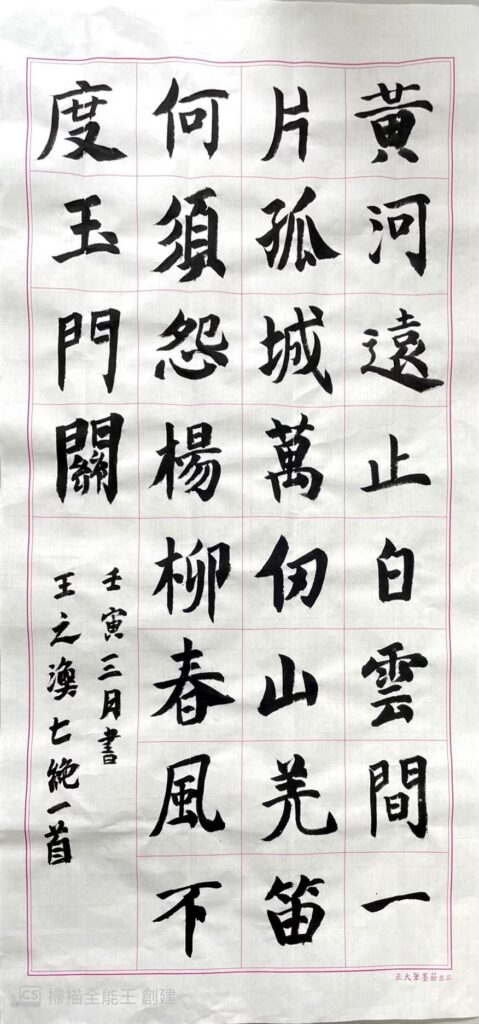 黃河遠止白雲間一
片孤城萬仞山羌笛
何須怨楊柳春風不
度玉門關
壬寅三月書
王之渙七絕一首
正大筆墨莊出品
CS 掃描全能王 創建